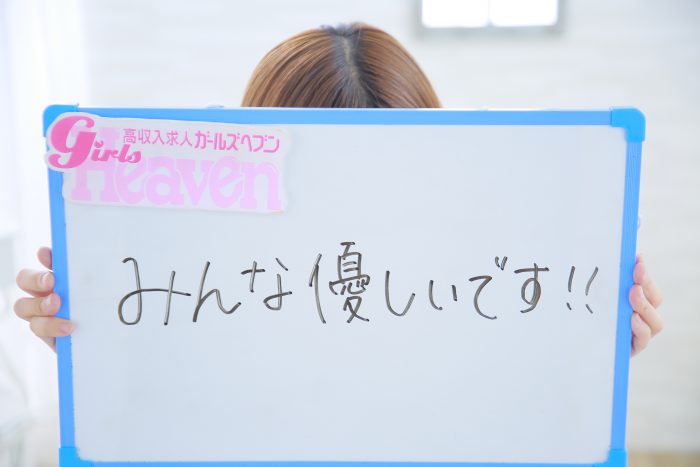 高収入求人 ガールズヘブン
Girls
Heaven
みんな優しいです!!